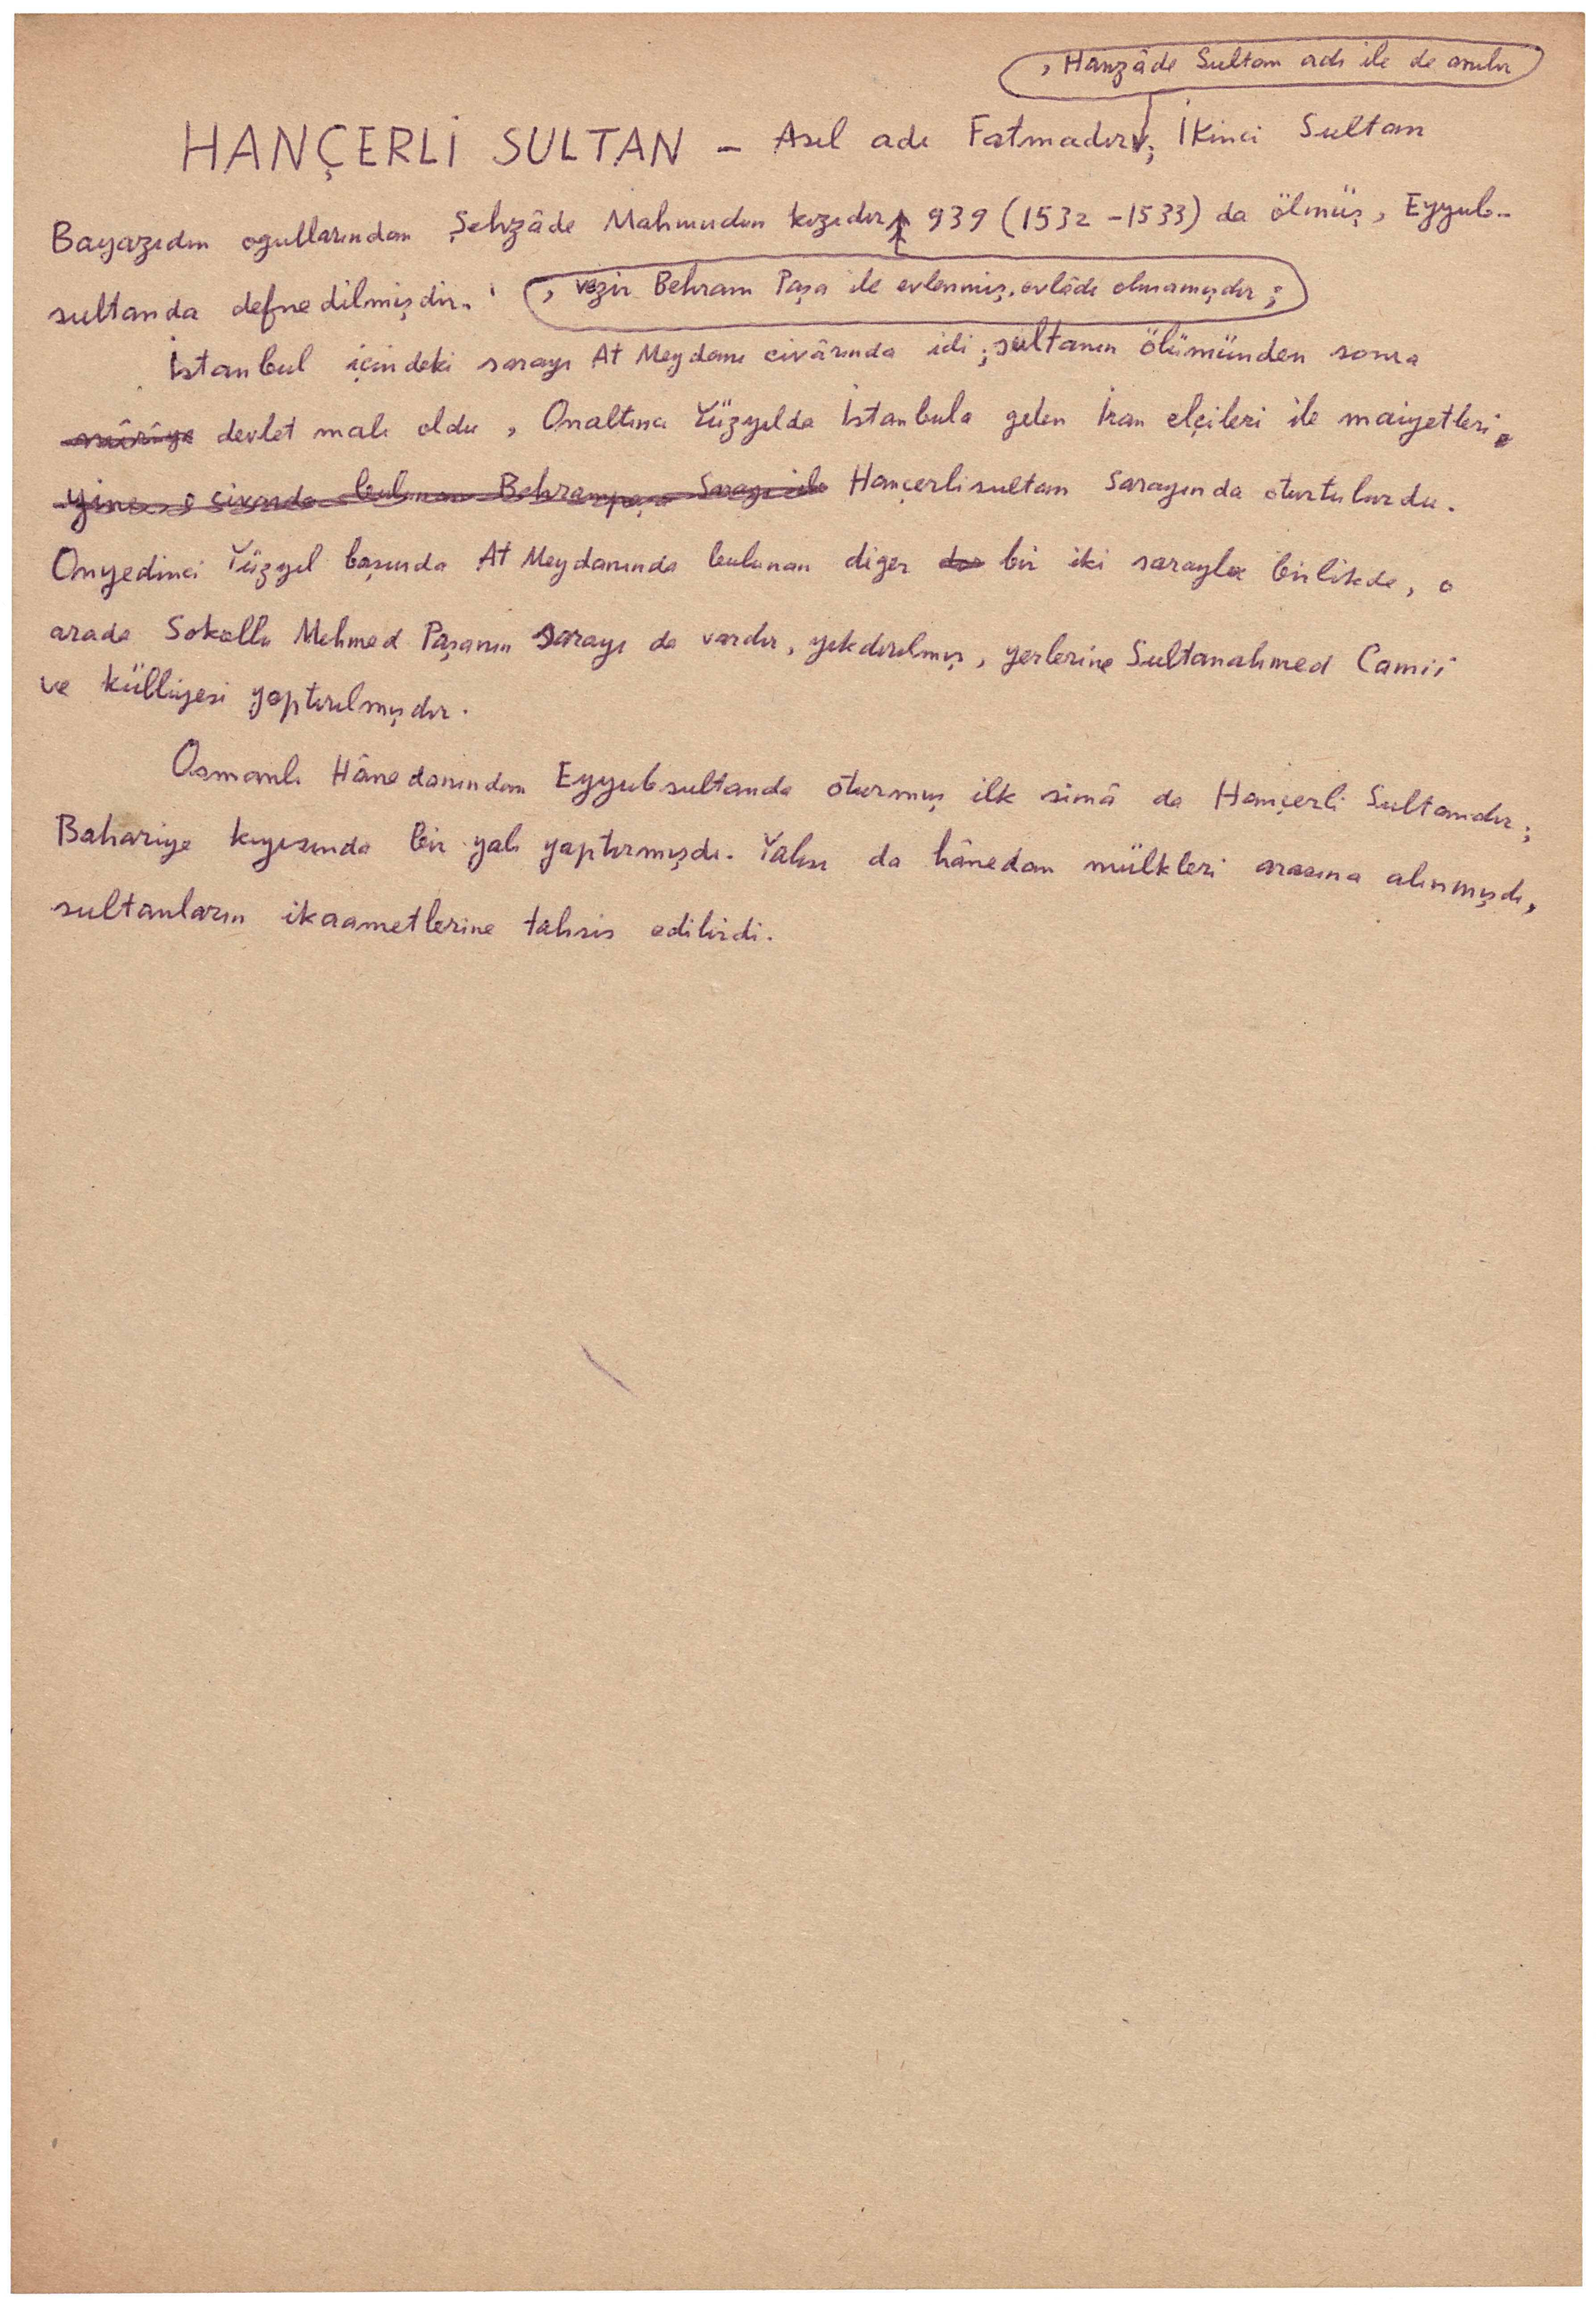 , Hanzâde Sultan adı ile de anılır
HANÇERLİ SULTAN – Asıl adı Fatmadır; İkinci Sultan
Bayazıdın ogullarından Şehzâde Mahmudun kızıdır 939 (1532 - 1533) da ölmüş, Eyyub-
sultanda defnedilmişdir.
, vezir Behram Paşa ile evlenmiş, evlâdı olmamışdır;
İstanbul içindeki sarayı At Meydanı civârında idi; sultanın ölümünden sonra
mîrîye devlet malı oldu, Onaltıncı Yüzyılda İstanbula gelen İran elçileri ile maiyetleri
yine o civarda bulunan Behrampaşa Sarayı ile Hançerlisultan Sarayında oturtulurdu.
Onyedinci Yüzyıl başında At Meydanında bulunan diger bir iki sarayla birlikde, o
arada Sokollu Mehmed Paşanın Sarayı da vardır, yıkdırılmış, yerlerine Sultanahmed Camii
ve külliyesi yaptırılmışdır.
Osmanlı Hânedanından Eyyubsultanda oturmuş ilk simâ da Hançerli Sultandır;
Bahariye kıyısında bir yalı yaptırmışdı. Yalısı da hânedan mülkleri arasına alınmışdı,
sultanların ikaametlerine tahsis edilirdi.